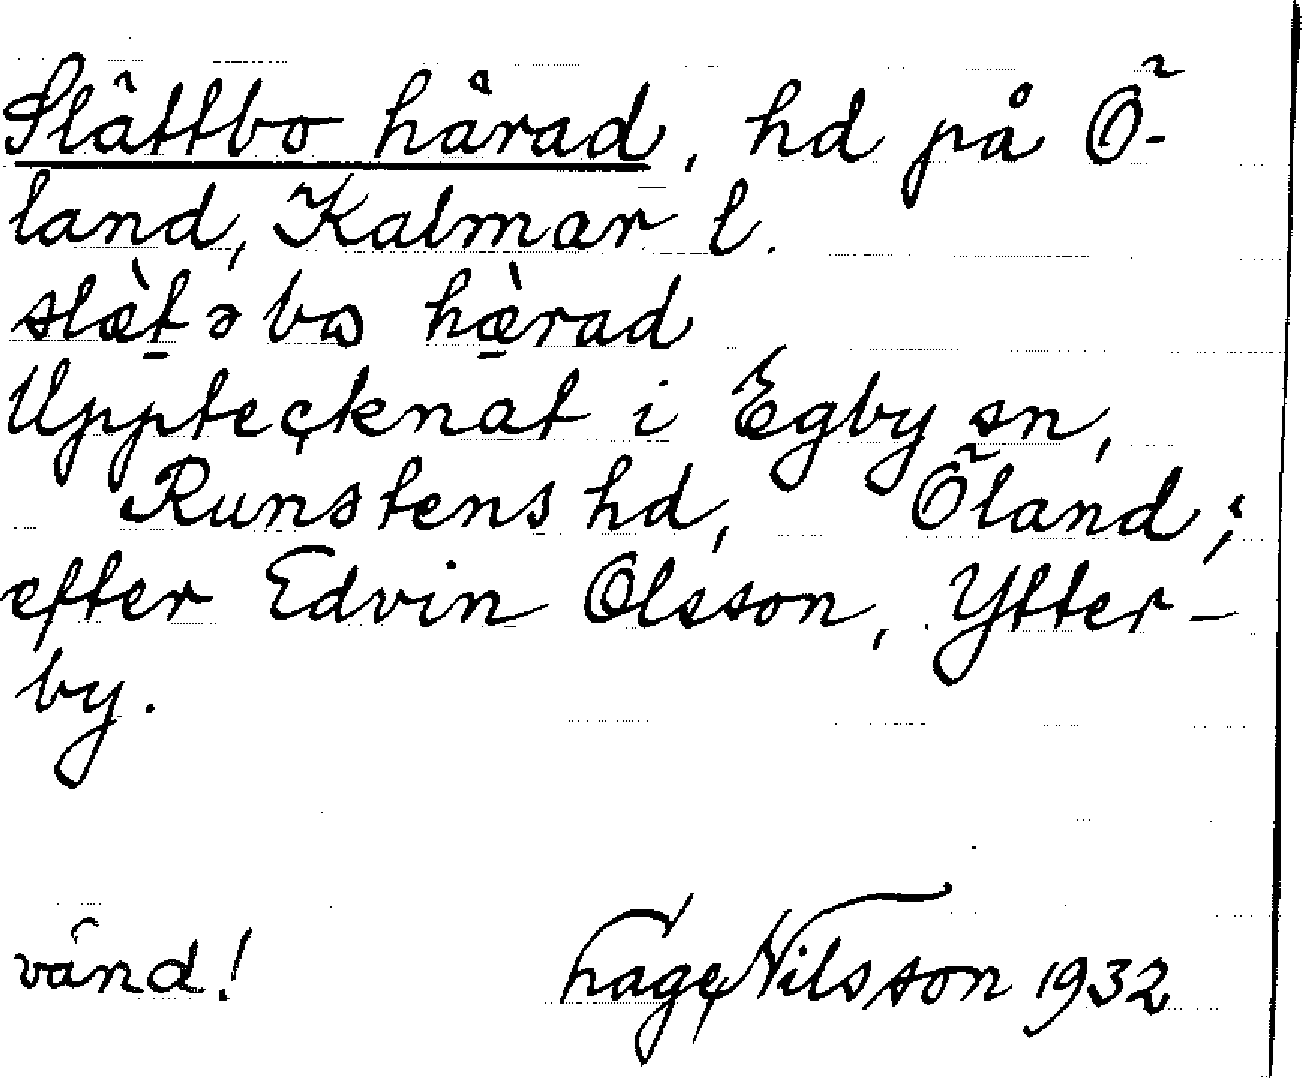 Slättbo härad, hd på Ö-
land, Kalmar l.
slæ̀t̠ə bɷ hæ̠̀rad
Upptecknat i Egby sn,
Runstens hd, Öland;
efter Edvin Olsson, Ytter-
by.
vänd! Hage Nilsson 1932